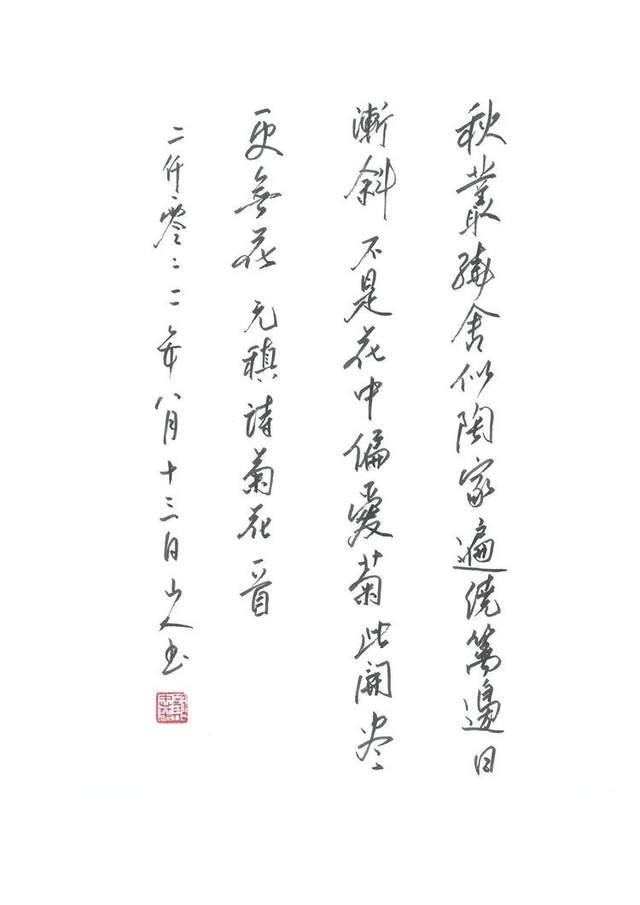 秋叢繞舍似陶家遍繞籬邊日
漸斜不是花中偏愛菊此開尽
更無花 元稹詩菊花一首
二仟零二一年八月十三日山人书